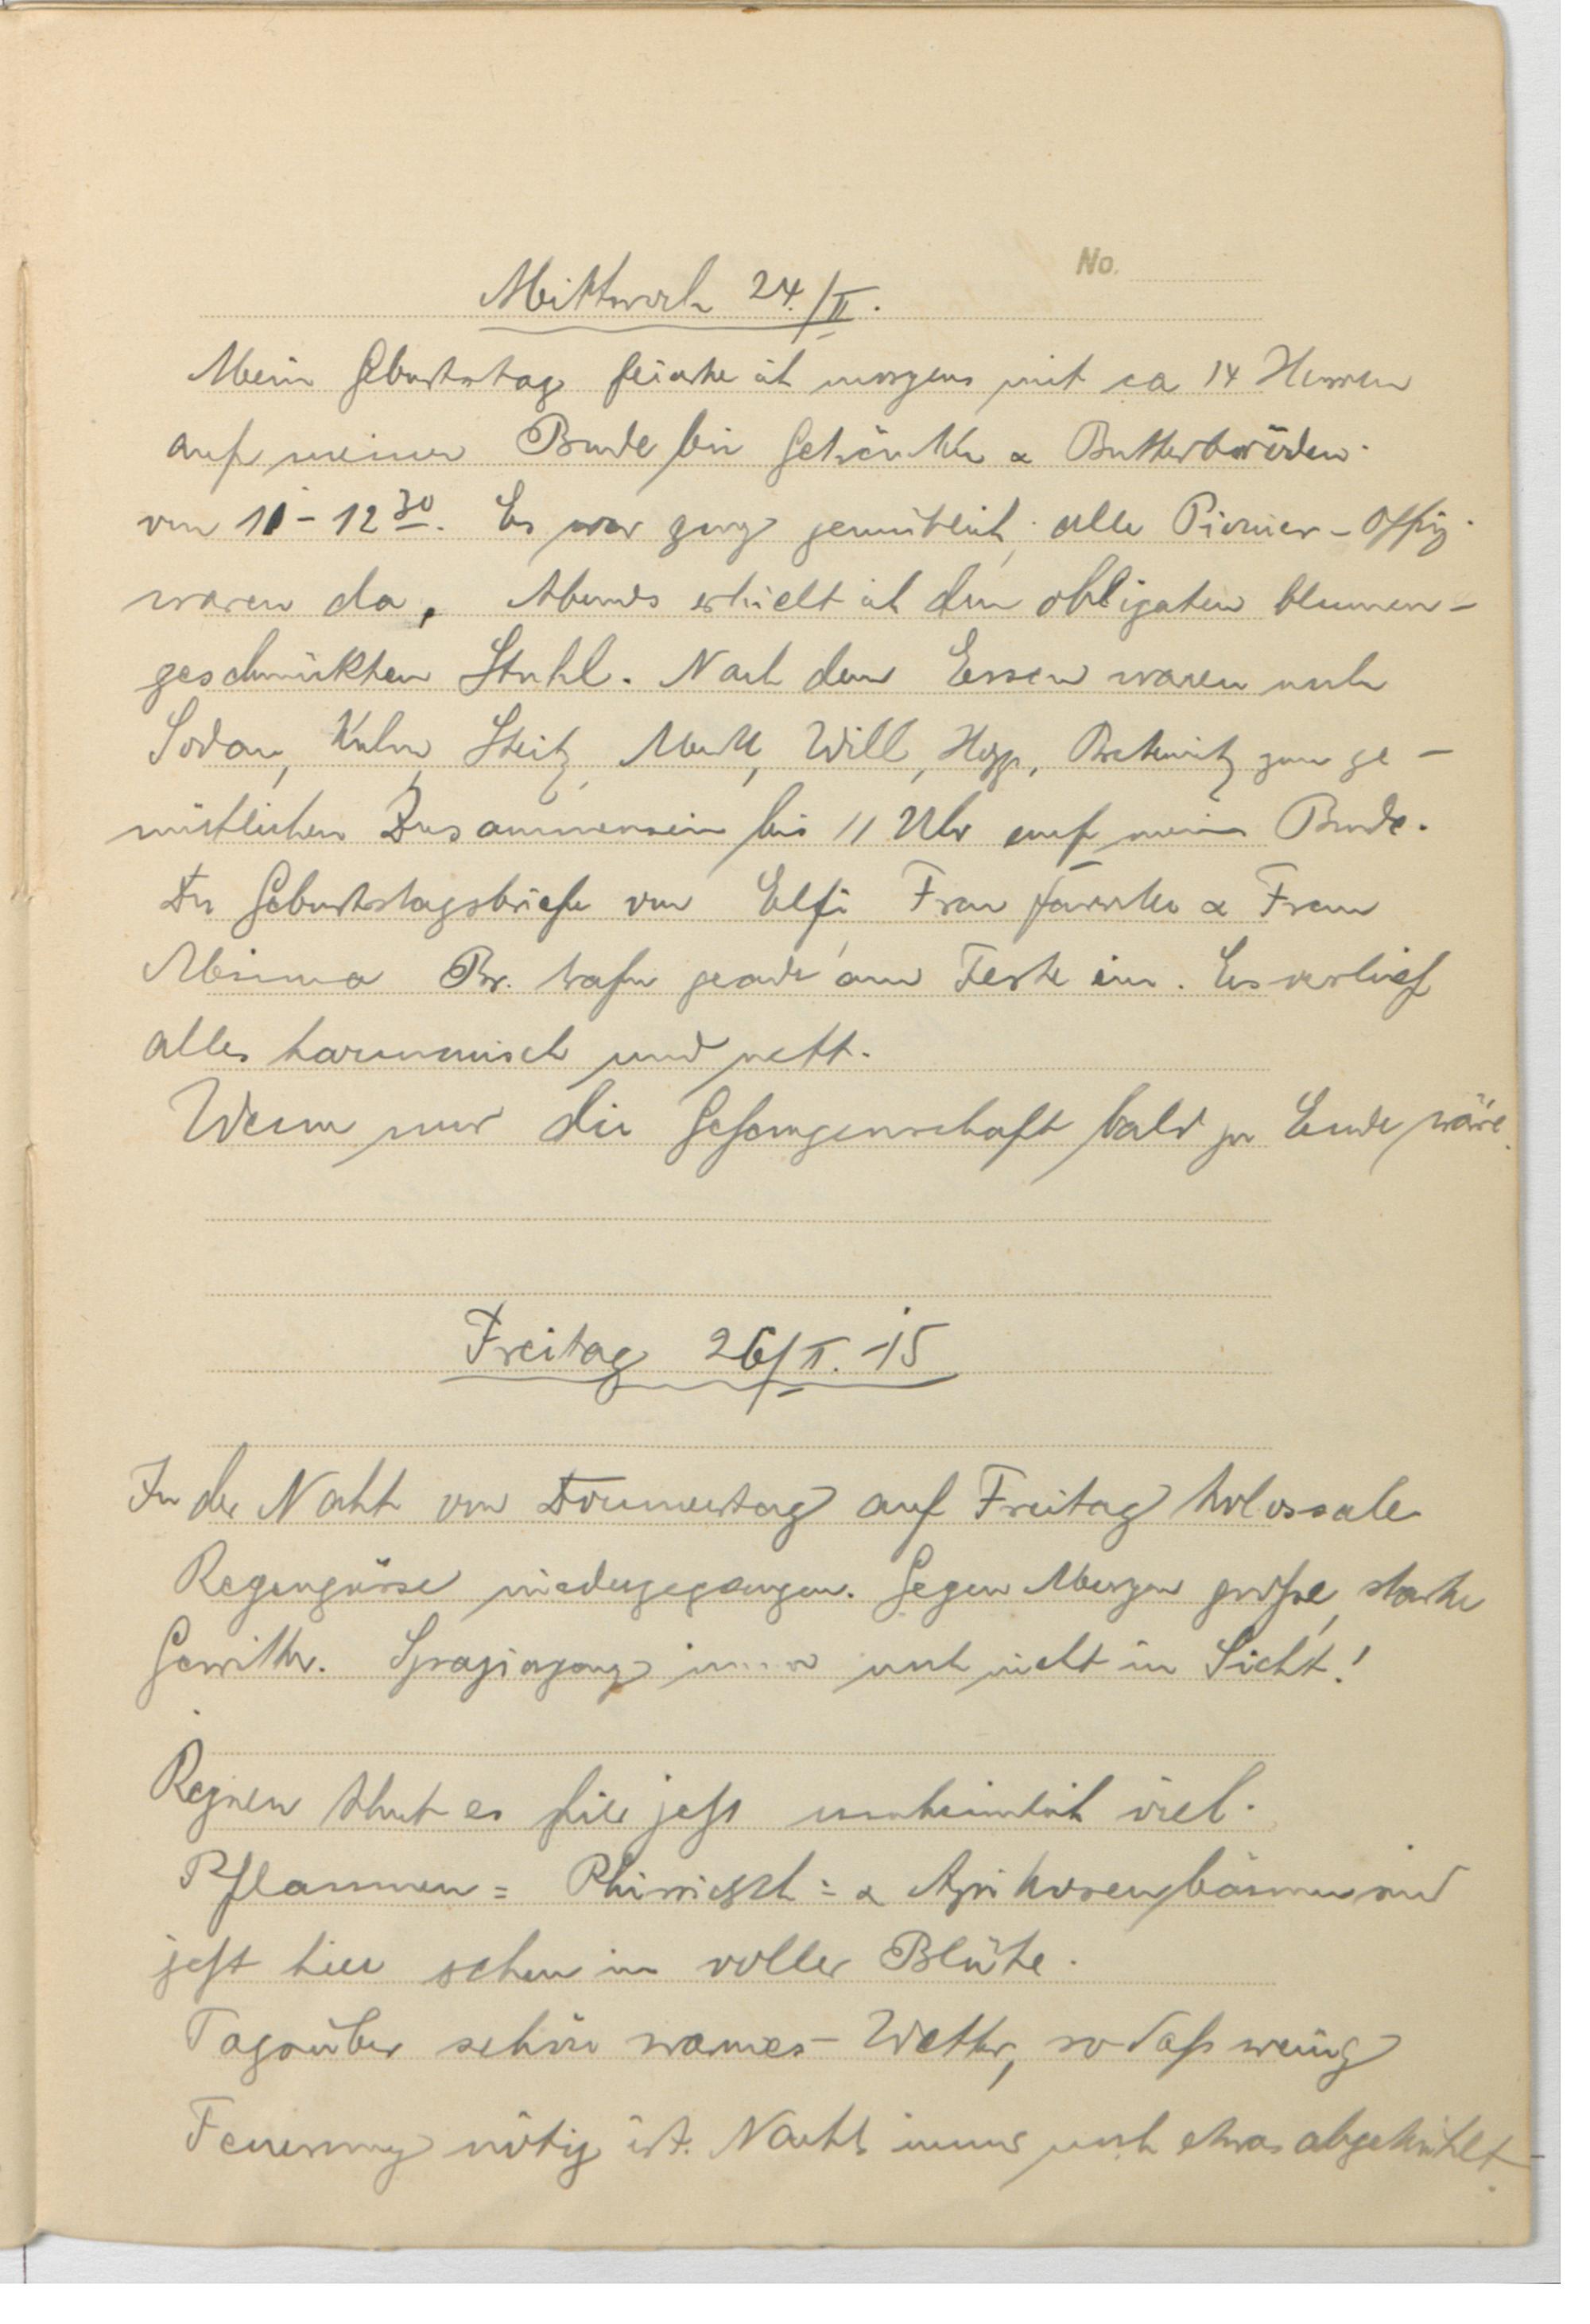 No.
Mittwoch 24./II.
Mein Geburtstag feierte ich morgens mit ca 14 Herren
auf meiner Bude bei Getränke & Butterbröden
von 11 - 12 30. Es war ganz gemütlich, alle Pionier-Offiz.
waren da. Abends erhielt ich den obligaten blumen-
geschmückten Stuhl. Nach dem Essen waren noch
Sodan, Kuhn, Steitz, Will, Hopp, zum ge-
mütlichen Zusammensein bis 11 Uhr auf meine Bude.
Die Geburtstagsbriefe von Elfi, Frau & Frau
Minna Br. trafen gerade am Feste ein. Es verlief
alles harmonisch und nett.
Wenn nur die Gefangenschaft bald zu Ende wäre.
Freitag 26/II. -15
In der Nacht von Donnerstag auf Freitag kolossale
Regengüsse niedergegangen. Gegen Morgen große, starke
Gewitter. Spaziergang immer noch nicht in Sicht!
Regnen thut es hier jetzt unheimlich viel.
Pflaumen= & Aprikosenbäume sind
jetzt hier schon in voller Blüte.
Tagsüber schön warmes Wetter, so daß wenig
Feuerung nötig ist. Nachts immer noch etwas abgekühlt.